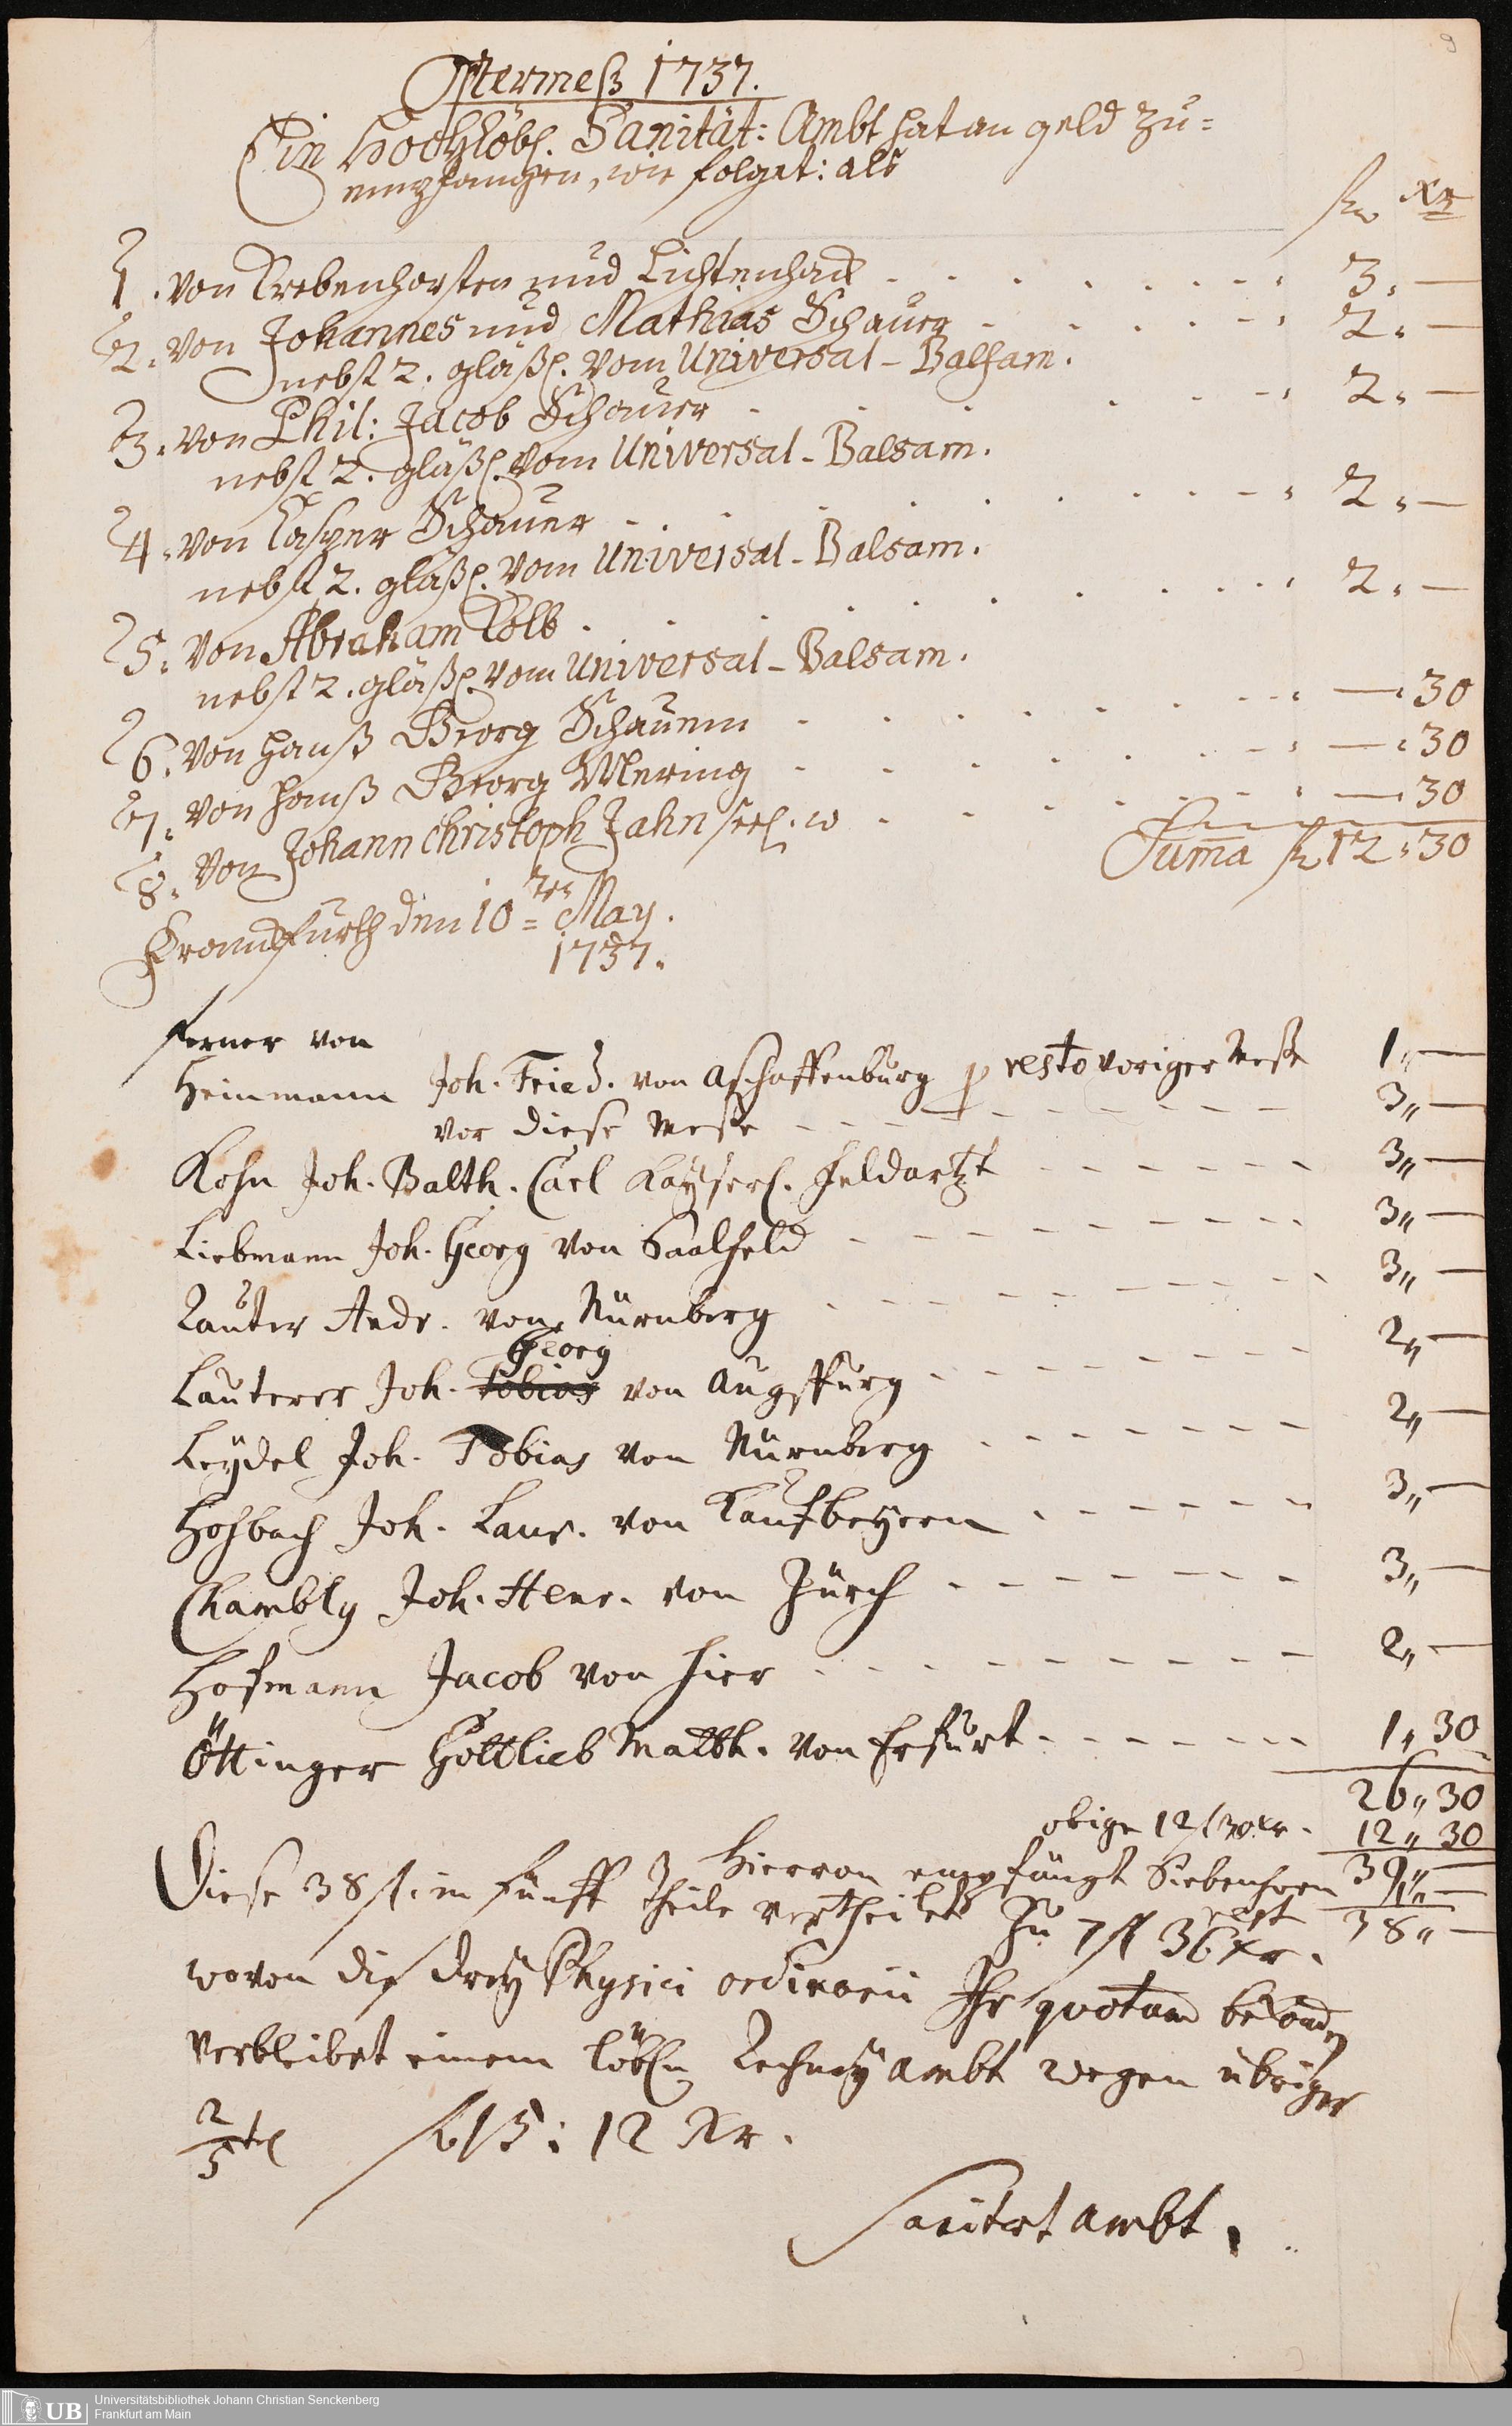 9
Ostermeß 1737.
Ein Hochlöbl. Sanität: Ambt hat an geld zu=
empfangen, wie folget: als
fl. Xr
1. von Krebenhorsten und Lichtenhan 3. —
2. von Johannes und Mathias Schauer 2. —
nebst 2. gläßl. vom Universal-Balsam.
3. von Phil: Jacob Schauer 2. —
nebst 2. gläßl. vom Universal-Balsam.
4. von Casper Schauer 2. —
nebst 2. gläßl. vom Universal-Balsam.
5. von Abraham Kolb 2. —
nebst 2. gläßl. vom Universal-Balsam.
6. von Hanß Georg Schauern — 30
7. von Hanß Georg Mering — 30
8. von Johann Christoph Jahn seel. w — 30
Suma fl 12. 30
Franckfurth den 10ten May.
1737.
ferner von
Heinmann Joh. Fried. von Aschaffenburg p resto voriger Meße 1,, —
vor diese Meße 3,, —
Kohn Joh. Balth. Carl Kayserl. Feldartzt 3,, —
Liebmann Joh. Georg von Saalfeld 3,, —
Lauter Andr. von Nürnberg 3,, —
Georg
Lauterer Joh. Tobias von Augspurg 2,, —
Leydel Joh. Tobias von Nürnberg 2,, —
Hosbach Joh. Laur. von Kaufbeyern 3,, —
Chambly Joh. Henr. von Zürch 3,, —
Hofmann Jacob von hier 2,, —
Öttinger Gottlieb Matth. von Erfurt 1,, 30
26,, 30
obige 12 f 30 xr. 12,, 30
Hiervon empfängt Siebenhorn 39,, —
1,, —
rest 38,, —
Diese 38 f. in fünff Theile vertheilet zu 7 fl 36 xr.
wovon die drey Physici ordinarii Ihr quotam
verbleibet einem löbln Rechney ambt wegen übriger
2/5tel fl 15: 12 Xr.
Sanitet ambt.
UB Universitätsbibliothek Johann Christian Senckenberg
Frankfurt am Main